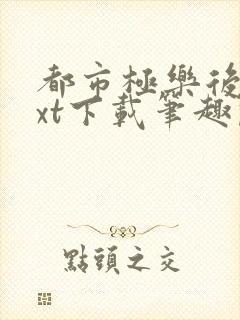 都市極樂後
xt下載筆趣
點頭之交